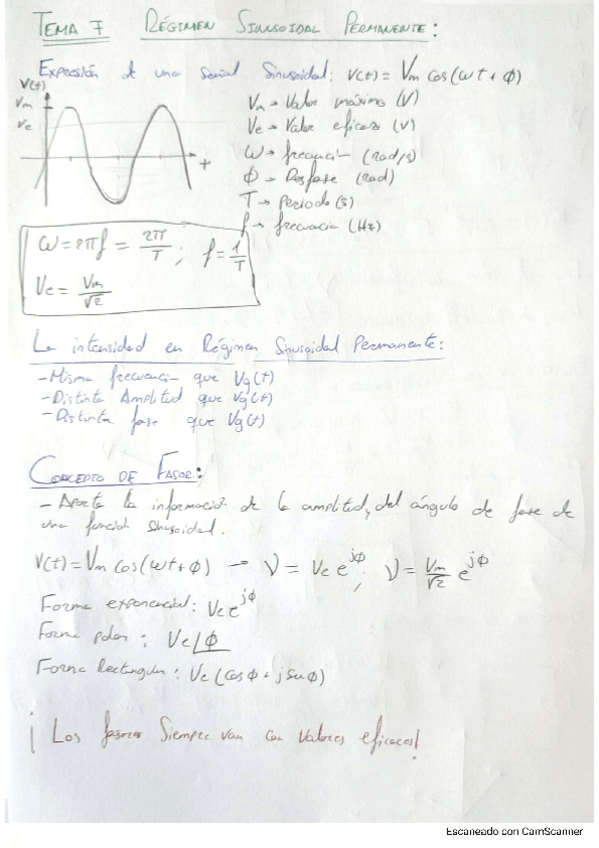 TEMA 7 RÉGIMEN SINUSOIDAL PERMANENTE:
Expresión de una señal Sinusoidal: V(t) = Vm Cos(ωt + ϕ)
V(t)
Vm
Ve
t
Vm → Valor máximo (V)
Ve → Valor eficaz (V)
ω → frecuencia (rad/s)
ϕ → Desfase (rad)
T → Periodo (s)
f → frecuencia (Hz)
ω = 2πf = 2π/T ; f = 1/T
Ve = Vm/√2
La intensidad en Régimen Sinusoidal Permanente:
- Misma frecuencia que Vg(t)
- Distinta Amplitud que Vg(t)
- Distinta fase que Vg(t)
CONCEPTO DE FASOR:
- Aporta la información de la amplitud, del ángulo de fase de
una función sinusoidal.
V(t) = Vm Cos(ωt + ϕ) → V = Ve e^jϕ ; V = Vm/√2 e^jϕ
Forma exponencial: Ve e^jϕ
Forma polar: Ve∠ϕ
Forma Rectangular: Ve (Cosϕ + j Senϕ)
¡ Los fasores Siempre van con Valores eficaces!
Escaneado con CamScanner